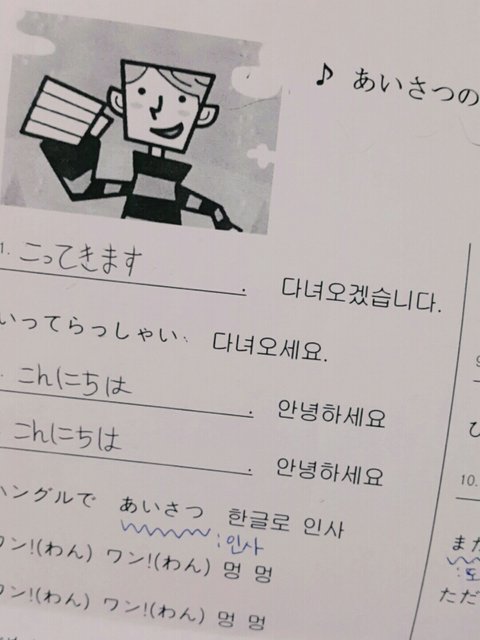 ♪ あいさつの
1. こってきます . 다녀오겠습니다.
いってらっしゃい、 다녀오세요.
こんにちは . 안녕하세요
こんにちは . 안녕하세요
ハングルで あいさつ 한글로 인사
:인사
ワン!(わん) ワン!(わん) 멍 멍
ワン!(わん) ワン!(わん) 멍 멍
10.
また
ただ